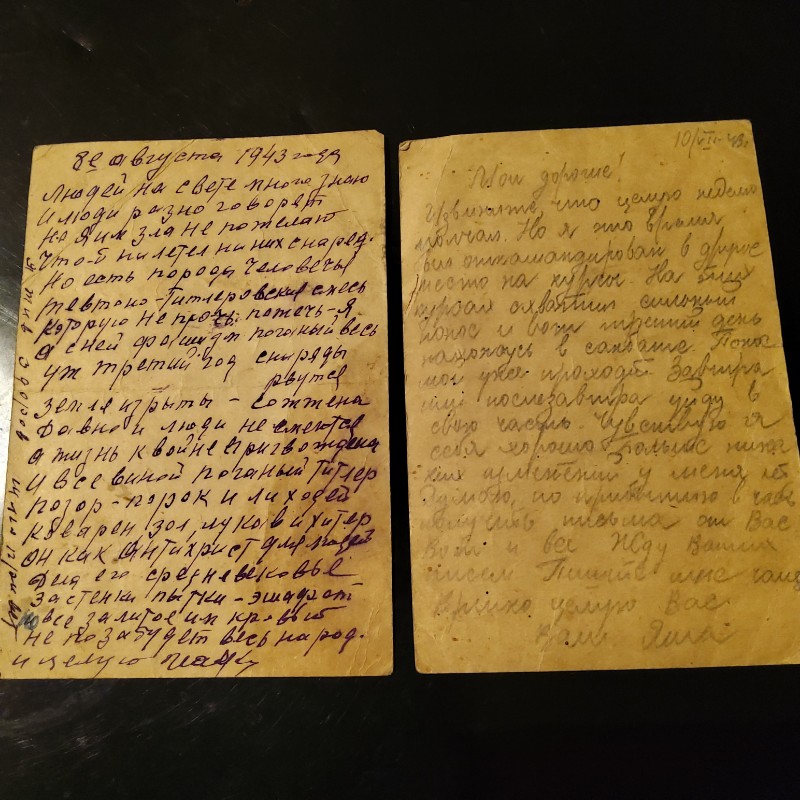 8е августа 1943 года
Людей на свете много знаю
и люди разно говорет
но я им зла не пожелаю
что-б на летел на них снаред.
Но есть порода человечья
тевтоно-Гитлеровская смесь
которую не
а с ней фашизм поганый весь
уж третий год снаряды
рвутся
земля изрыты - сожжена
давно и люди не смеются
а жизнь к войне пригвождена
и все виной поганый Гитлер
позор-порок и лиходей
коварен зол, луков и хитер
он как Антихрист для людей
дела его средневековье
застенки пытки-эшафот
и все залитое их кровью
не позабудет весь народ.
и целую
10/VIII-43г.
Мои дорогие!
Извините, что целую неделю
молчал. Но я это время
был откомандирован в другое
место на курсы. На этих
курсах схватил сильный
понос и вот третий день
нахожусь в санбате. Понос
мой уже проходит. Завтра
или послезавтра уйду в
свою часть. Чувствую я
себя хорошо больше ника-
ких изменений у меня нет
Думаю, по прибытию в часть
получить письма от Вас
Вот и все Жду Ваших
писем Пишите мне чаще
Крепко целую Вас
Ваш Яша